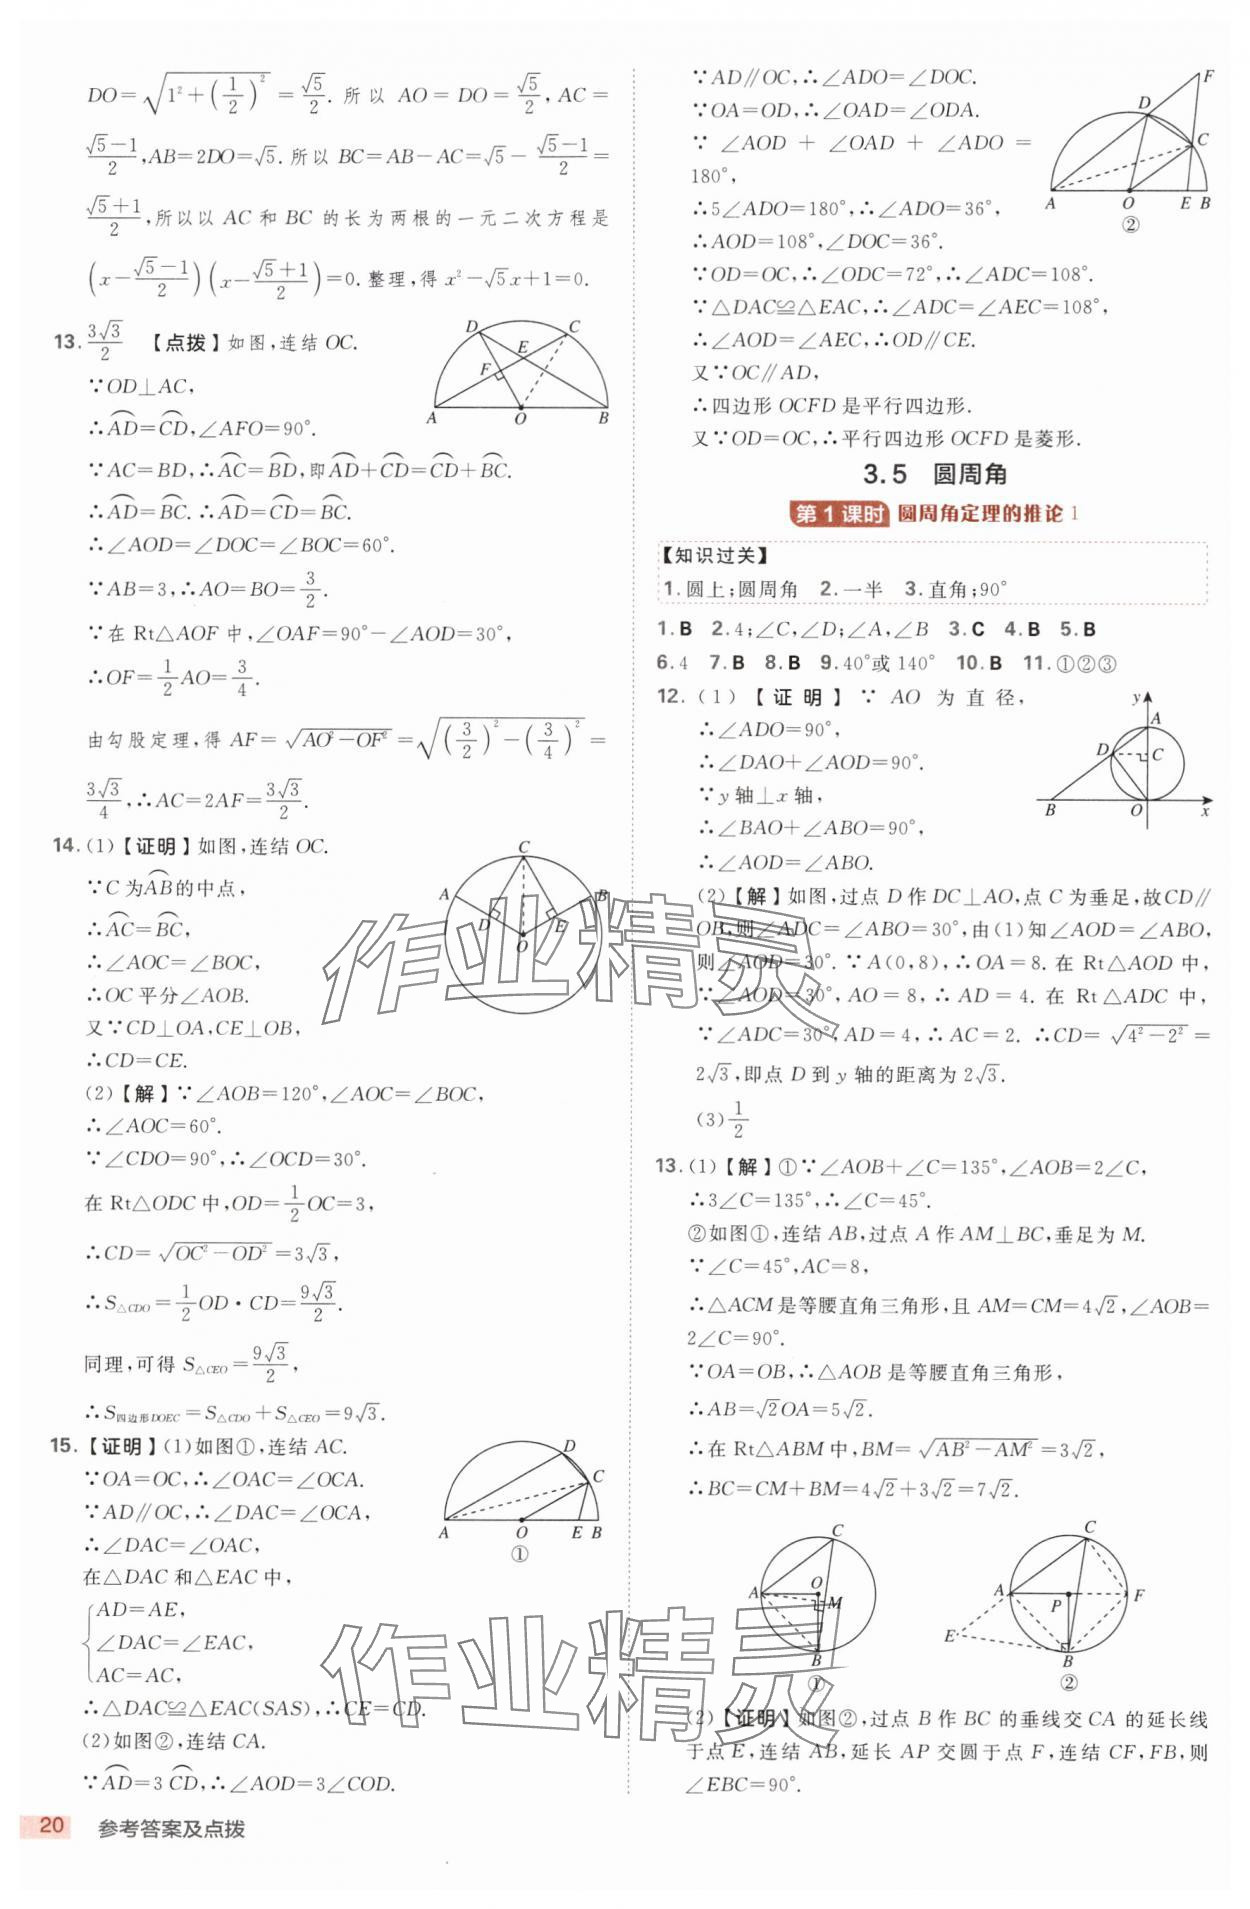 DO=√(1²+(1/2)²)=√5/2.所以 AO=DO=√5/2,AC=
(√5-1)/2,AB=2DO=√5.所以 BC=AB-AC=√5-(√5-1)/2=
(√5+1)/2,所以以 AC 和 BC 的长为两根的一元二次方程是
(x-(√5-1)/2)(x-(√5+1)/2)=0.整理,得 x²-√5x+1=0.
13.3√3/2 【点拨】如图,连结 OC.
∵OD⊥AC,
∴⌒AD=⌒CD,∠AFO=90°.
∵AC=BD,∴⌒AC=⌒BD,即⌒AD+⌒CD=⌒CD+⌒BC.
∴⌒AD=⌒BC.∴⌒AD=⌒CD=⌒BC.
∴∠AOD=∠DOC=∠BOC=60°.
∵AB=3,∴AO=BO=3/2.
∵在 Rt△AOF 中,∠OAF=90°-∠AOD=30°,
∴OF=1/2AO=3/4.
由勾股定理,得 AF=√(AO²-OF²)=√((3/2)²-(3/4)²)=
3√3/4,∴AC=2AF=3√3/2.
D C E F A O B
14.(1)【证明】如图,连结 OC.
∵C 为⌒AB的中点,
∴⌒AC=⌒BC,
∴∠AOC=∠BOC,
∴OC 平分∠AOB.
又∵CD⊥OA,CE⊥OB,
∴CD=CE.
(2)【解】∵∠AOB=120°,∠AOC=∠BOC,
∴∠AOC=60°.
∵∠CDO=90°,∴∠OCD=30°.
在 Rt△ODC 中,OD=1/2OC=3,
∴CD=√(OC²-OD²)=3√3,
∴S△CDO=1/2OD·CD=9√3/2.
同理,可得 S△CEO=9√3/2,
∴S四边形DOEC=S△CDO+S△CEO=9√3.
C A B D E O
15.【证明】(1)如图①,连结 AC.
∵OA=OC,∴∠OAC=∠OCA.
∵AD∥OC,∴∠DAC=∠OCA,
∴∠DAC=∠OAC,
在△DAC 和△EAC 中,
{AD=AE,
∠DAC=∠EAC,
AC=AC,
∴△DAC≌△EAC(SAS),∴CE=CD.
(2)如图②,连结 CA.
∵⌒AD=3⌒CD,∴∠AOD=3∠COD.
D C A O E B
①
20 参考答案及点拨
∵AD∥OC,∴∠ADO=∠DOC.
∵OA=OD,∴∠OAD=∠ODA.
∵ ∠AOD + ∠OAD + ∠ADO =
180°,
∴5∠ADO=180°,∴∠ADO=36°,
∴∠AOD=108°,∠DOC=36°.
∵OD=OC,∴∠ODC=72°,∴∠ADC=108°.
∵△DAC≌△EAC,∴∠ADC=∠AEC=108°,
∴∠AOD=∠AEC,∴OD∥CE.
又∵OC∥AD,
∴四边形 OCFD 是平行四边形.
又∵OD=OC,∴平行四边形 OCFD 是菱形.
F D C A O E B
②
3.5 圆周角
第1课时 圆周角定理的推论1
【知识过关】
1.圆上;圆周角 2.一半 3.直角;90°
1.B 2.4;∠C,∠D;∠A,∠B 3.C 4.B 5.B
6.4 7.B 8.B 9.40°或 140° 10.B 11.①②③
12.(1)【证明】∵ AO 为直径,
∴∠ADO=90°,
∴∠DAO+∠AOD=90°.
∵y 轴⊥x 轴,
∴∠BAO+∠ABO=90°,
∴∠AOD=∠ABO.
y A D C B O x
(2)【解】如图,过点 D 作 DC⊥AO,点 C 为垂足,故CD∥
OB,则∠ADC=∠ABO=30°,由(1)知∠AOD=∠ABO,
则∠AOD=30°.∵A(0,8),∴OA=8.在 Rt△AOD 中,
∵∠AOD=30°,AO=8,∴AD=4.在 Rt△ADC 中,
∵∠ADC=30°,AD=4,∴AC=2.∴CD=√(4²-2²)=
2√3,即点 D 到 y 轴的距离为 2√3.
(3)1/2
13.(1)【解】①∵∠AOB+∠C=135°,∠AOB=2∠C,
∴3∠C=135°,∴∠C=45°.
②如图①,连结 AB,过点 A 作 AM⊥BC,垂足为 M.
∵∠C=45°,AC=8,
∴△ACM 是等腰直角三角形,且 AM=CM=4√2,∠AOB=
2∠C=90°.
∵OA=OB,∴△AOB 是等腰直角三角形,
∴AB=√2OA=5√2.
∴在 Rt△ABM 中,BM=√(AB²-AM²)=3√2,
∴BC=CM+BM=4√2+3√2=7√2.
C A O M B
①
C A P F E B
②
(2)【证明】如图②,过点 B 作 BC 的垂线交 CA 的延长线
于点 E,连结 AB,延长 AP 交圆于点 F,连结 CF,FB,则
∠EBC=90°.
作业精灵
作业精灵